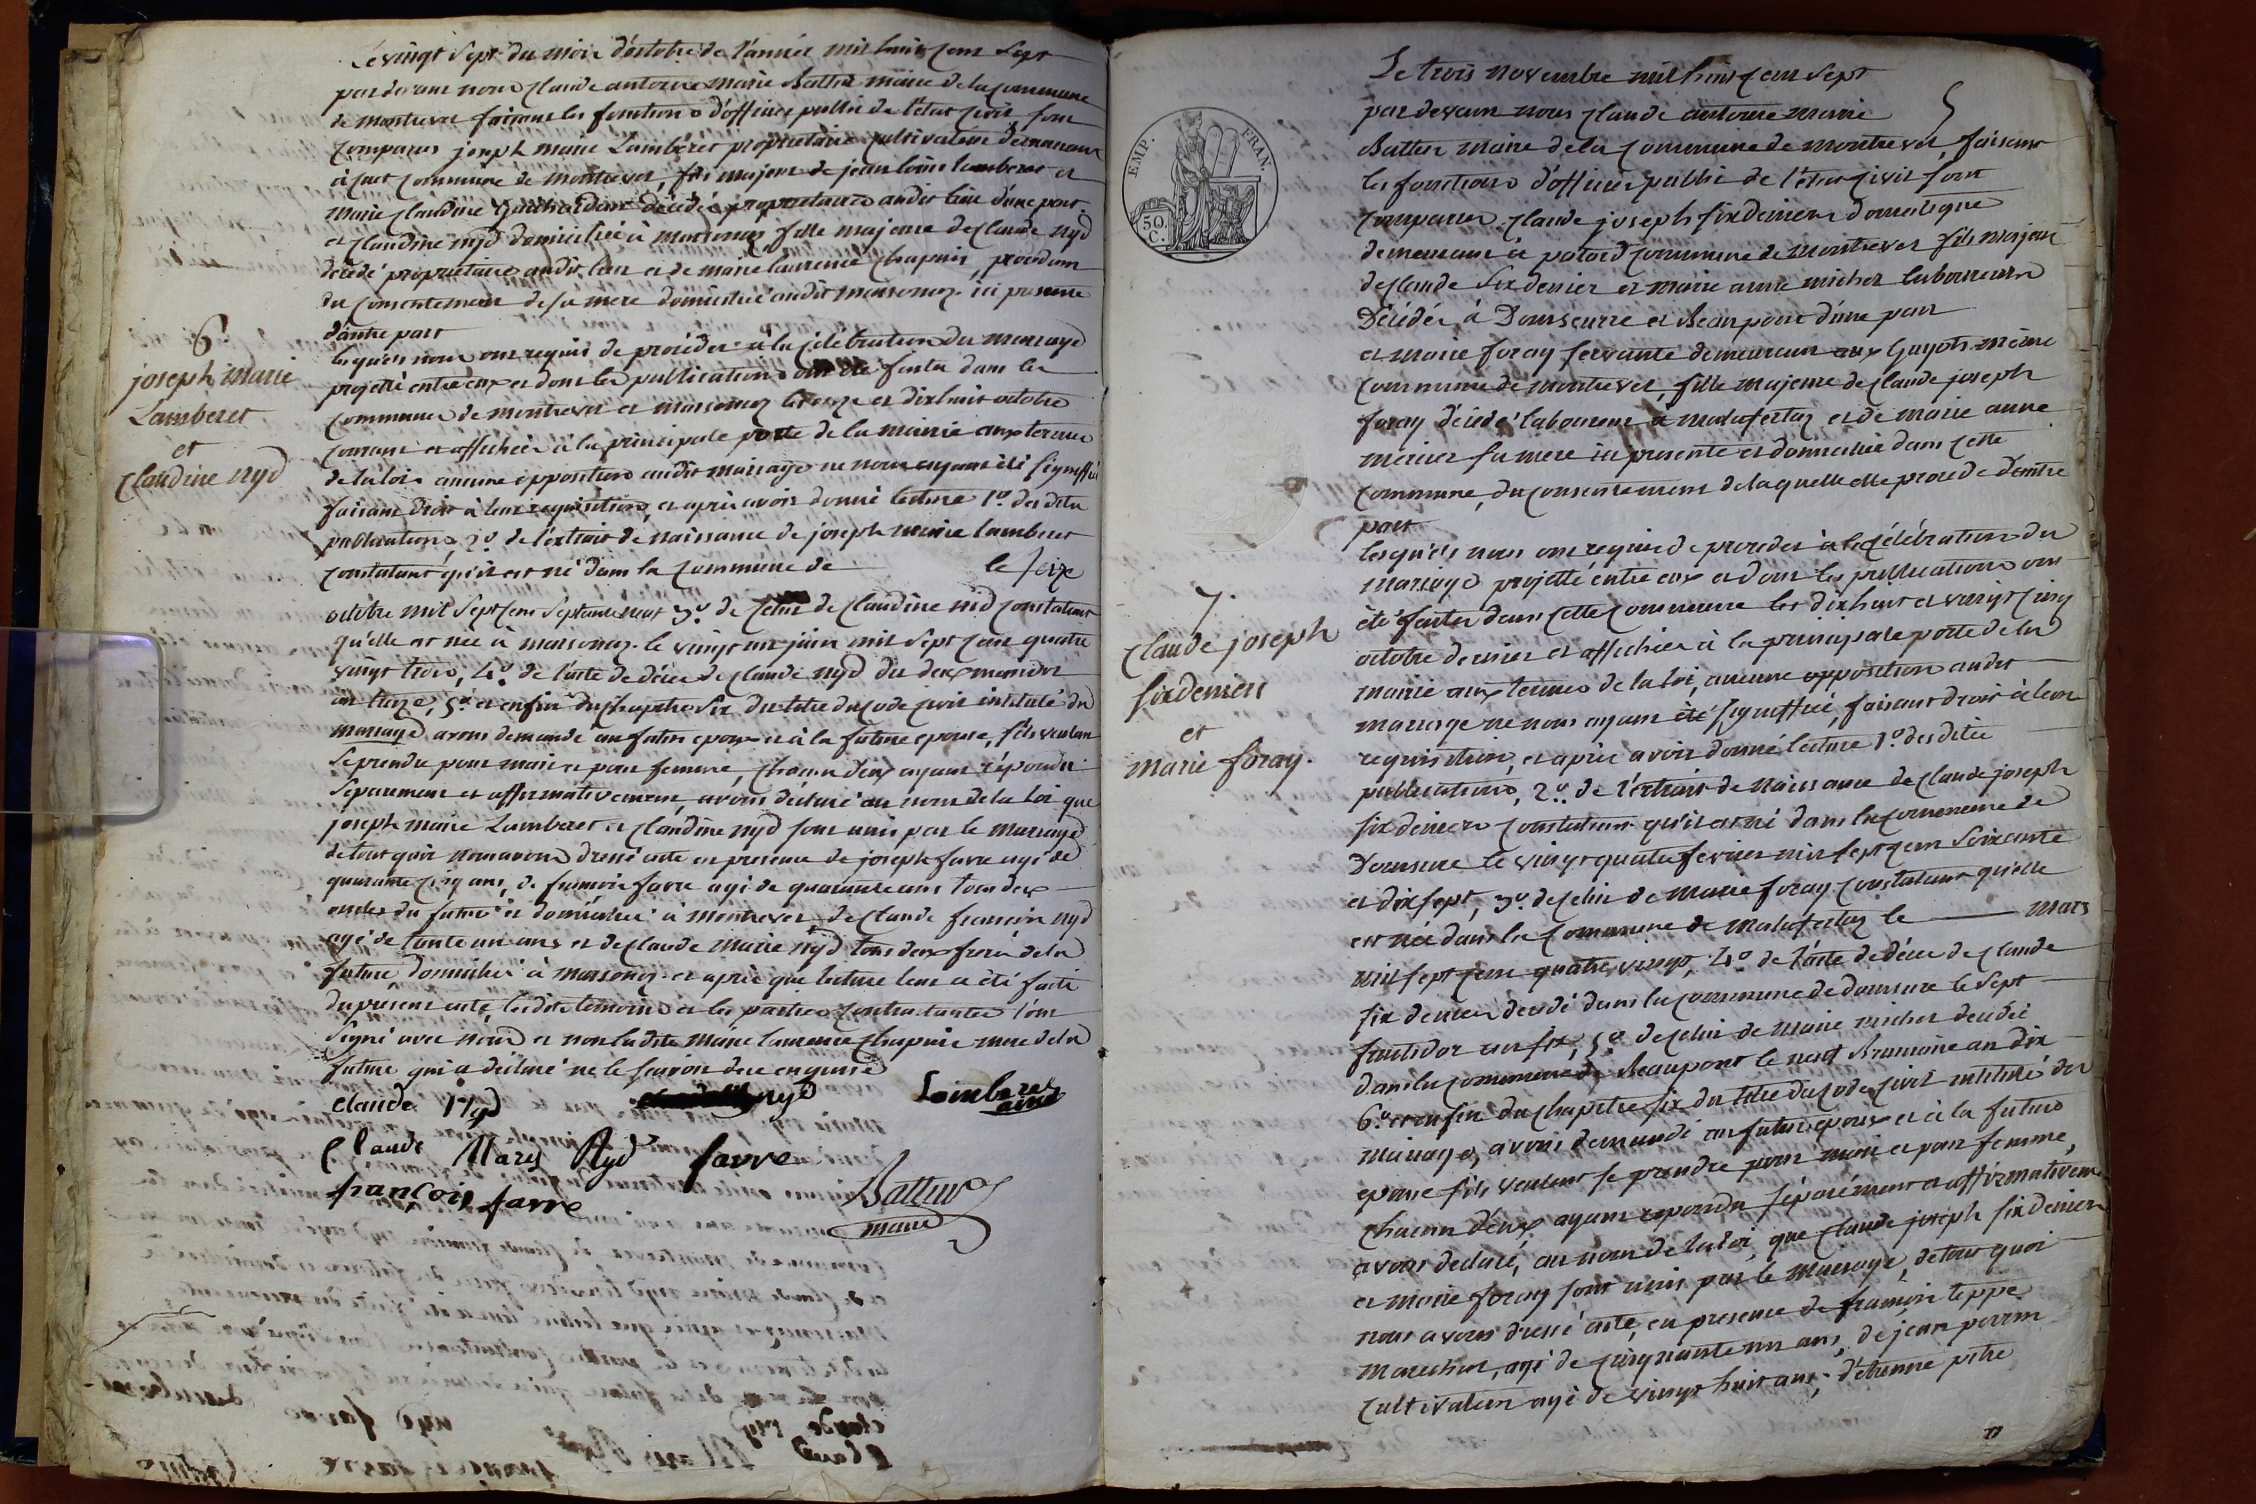 Le vingt sept du mois d'octobre de l'année mil huit cent sept
par devant nous Claude antoine marie Battur maire de la commune
de montrevel faisant les fonctions d'officier public de l'état civil sont
comparus joseph marie Lamberet propriétaire cultivateur demeurant
à commune de montrevel, fils majeur de jean louis lamberet et
marie Claudine décédés propriétaires audit lieu d'une part
et Claudine nyd domiciliée à marsonnaz fille majeure de Claude nyd
décédé propriétaire audit lieu et de marie laurence Chapuis, procédant
du consentement de sa mere domiciliée audit marsonnaz ici présente
d'autre part
lesquels nous ont requis de procéder à la célébration du mariage
projetté entre eux et dont les publications ont été faites dans les
communes de montrevel et marsonnaz le onze et dix huit octobre
courant et affichées à la principale porte de la mairie aux termes
de la loi aucune opposition audit mariage ne nous ayant été signiffiée
faisant droit à leur requisition, et après avoir donné lecture 1º. des dites
publications, 2º. de l'extrait de naissance de joseph marie lamberet
constatant qu'il est né dans la commune de le seize
octobre mil sept cent septante neuf 3º. de celui de Claudine nid constatant
qu'elle est née à marsonnaz le vingt un juin mil sept cent quatre
vingt trois, 4º. de l'acte de décès de Claude nyd du deux messidor
an treze, 5º. et enfin du chapitre six du titre du code civil intitulé du
mariage, avons demandé au futur epoux et à la future epouse, s'ils veulent
se prendre pour mari et pour femme, chacun d'eux ayant répondu
séparement et affirmativement, avons déclaré au nom de la loi que
joseph marie Lamberet et Claudine nyd sont unis par le mariage
de tout quoi nous avons dressé acte en presence de joseph favre agé de
quarante cinq ans, de françois favre agé de quarante ans tous deux
oncles du futur et domiciliés à montrevel, de Claude françois nyd
agé de trente un ans et de Claude marie nyd tous deux freres de la
future, domiciliés à marsonnaz et après que lecture leur a été faite
du présent acte, lesdits temoins et les parties contractantes l'ont
signé avec nous et non ladite marie laurence Chapuis mere de la
future qui a déclaré ne le sçavoir de ce enquise
claude Nyd nyd Lamberet
Claude Marie Nyd favre
françois favre Battur
maire
6.
joseph marie
Lamberet
et
Claudine nyd
EMP. FRAN.
50
C.
Le trois novembre mil huit cent sept
par devant nous Claude antoine marie
Battur maire de la commune de montrevel, faisant
les fonctions d'officier public de l'état civil sont
comparus Claude joseph sixdeniers domestique
demeurant à commune de montrevel fils majeur
de Claude Six denier et marie anne michel laboureurs
décédés à Doursurre et Beaupont d'une part
et marie foray servante demeurant aux Guyots même
commune de montrevel, fille majeure de Claude joseph
foray décédé laboureur à malafretaz et de marie anne
mercier sa mere ici presente et domiciliée dans cette
commune, du consentement de laquelle elle procede d'autre
part
lesquels nous ont requis de proceder à la célébration du
mariage projetté entre eux et dont les publications ont
été faites dans cette commune les dix huit et vingt cinq
octobre dernier et affichées à la principale porte de la
mairie aux termes de la loi, aucune opposition audit
mariage ne nous ayant été signiffiée, faisant droit à leur
requisition, et après avoir donné lecture 1º. des dites
publications, 2º. de l'extrait de naissance de Claude joseph
six deniers constatant qu'il est né dans la commune de
Doursure le vingt quatre fevrier mil sept cent soixante
et dix sept, 3º. de celui de marie foray constatant qu'elle
est née dans la commune de malafretaz le mars
mil sept cent quatre vingt, 4º. de l'acte de décès de Claude
six deniers décédé dans la commune de doursure le sept
fructidor an six, 5º. de celui de marie michel décédée
dans la commune de Beaupont le neuf Brumaire an dix
6º. et enfin du chapitre six du titre du code civil intitulé du
mariage, avons demandé au futur epoux et à la future
epouse s'ils veulent se prendre pour mari et pour femme,
chacun d'eux ayant repondu séparément et affirmativement
avons declaré, au nom de la loi, que Claude joseph six deniers
et marie foray sont unis par le mariage, de tout quoi
nous avons dressé acte, en presence de françois teppe
marechal, agé de cinquante un ans, de jean perrin
cultivateur agé de vingt huit ans, d'étienne pitre
7.
Claude joseph
sixdeniers
et
marie foray.